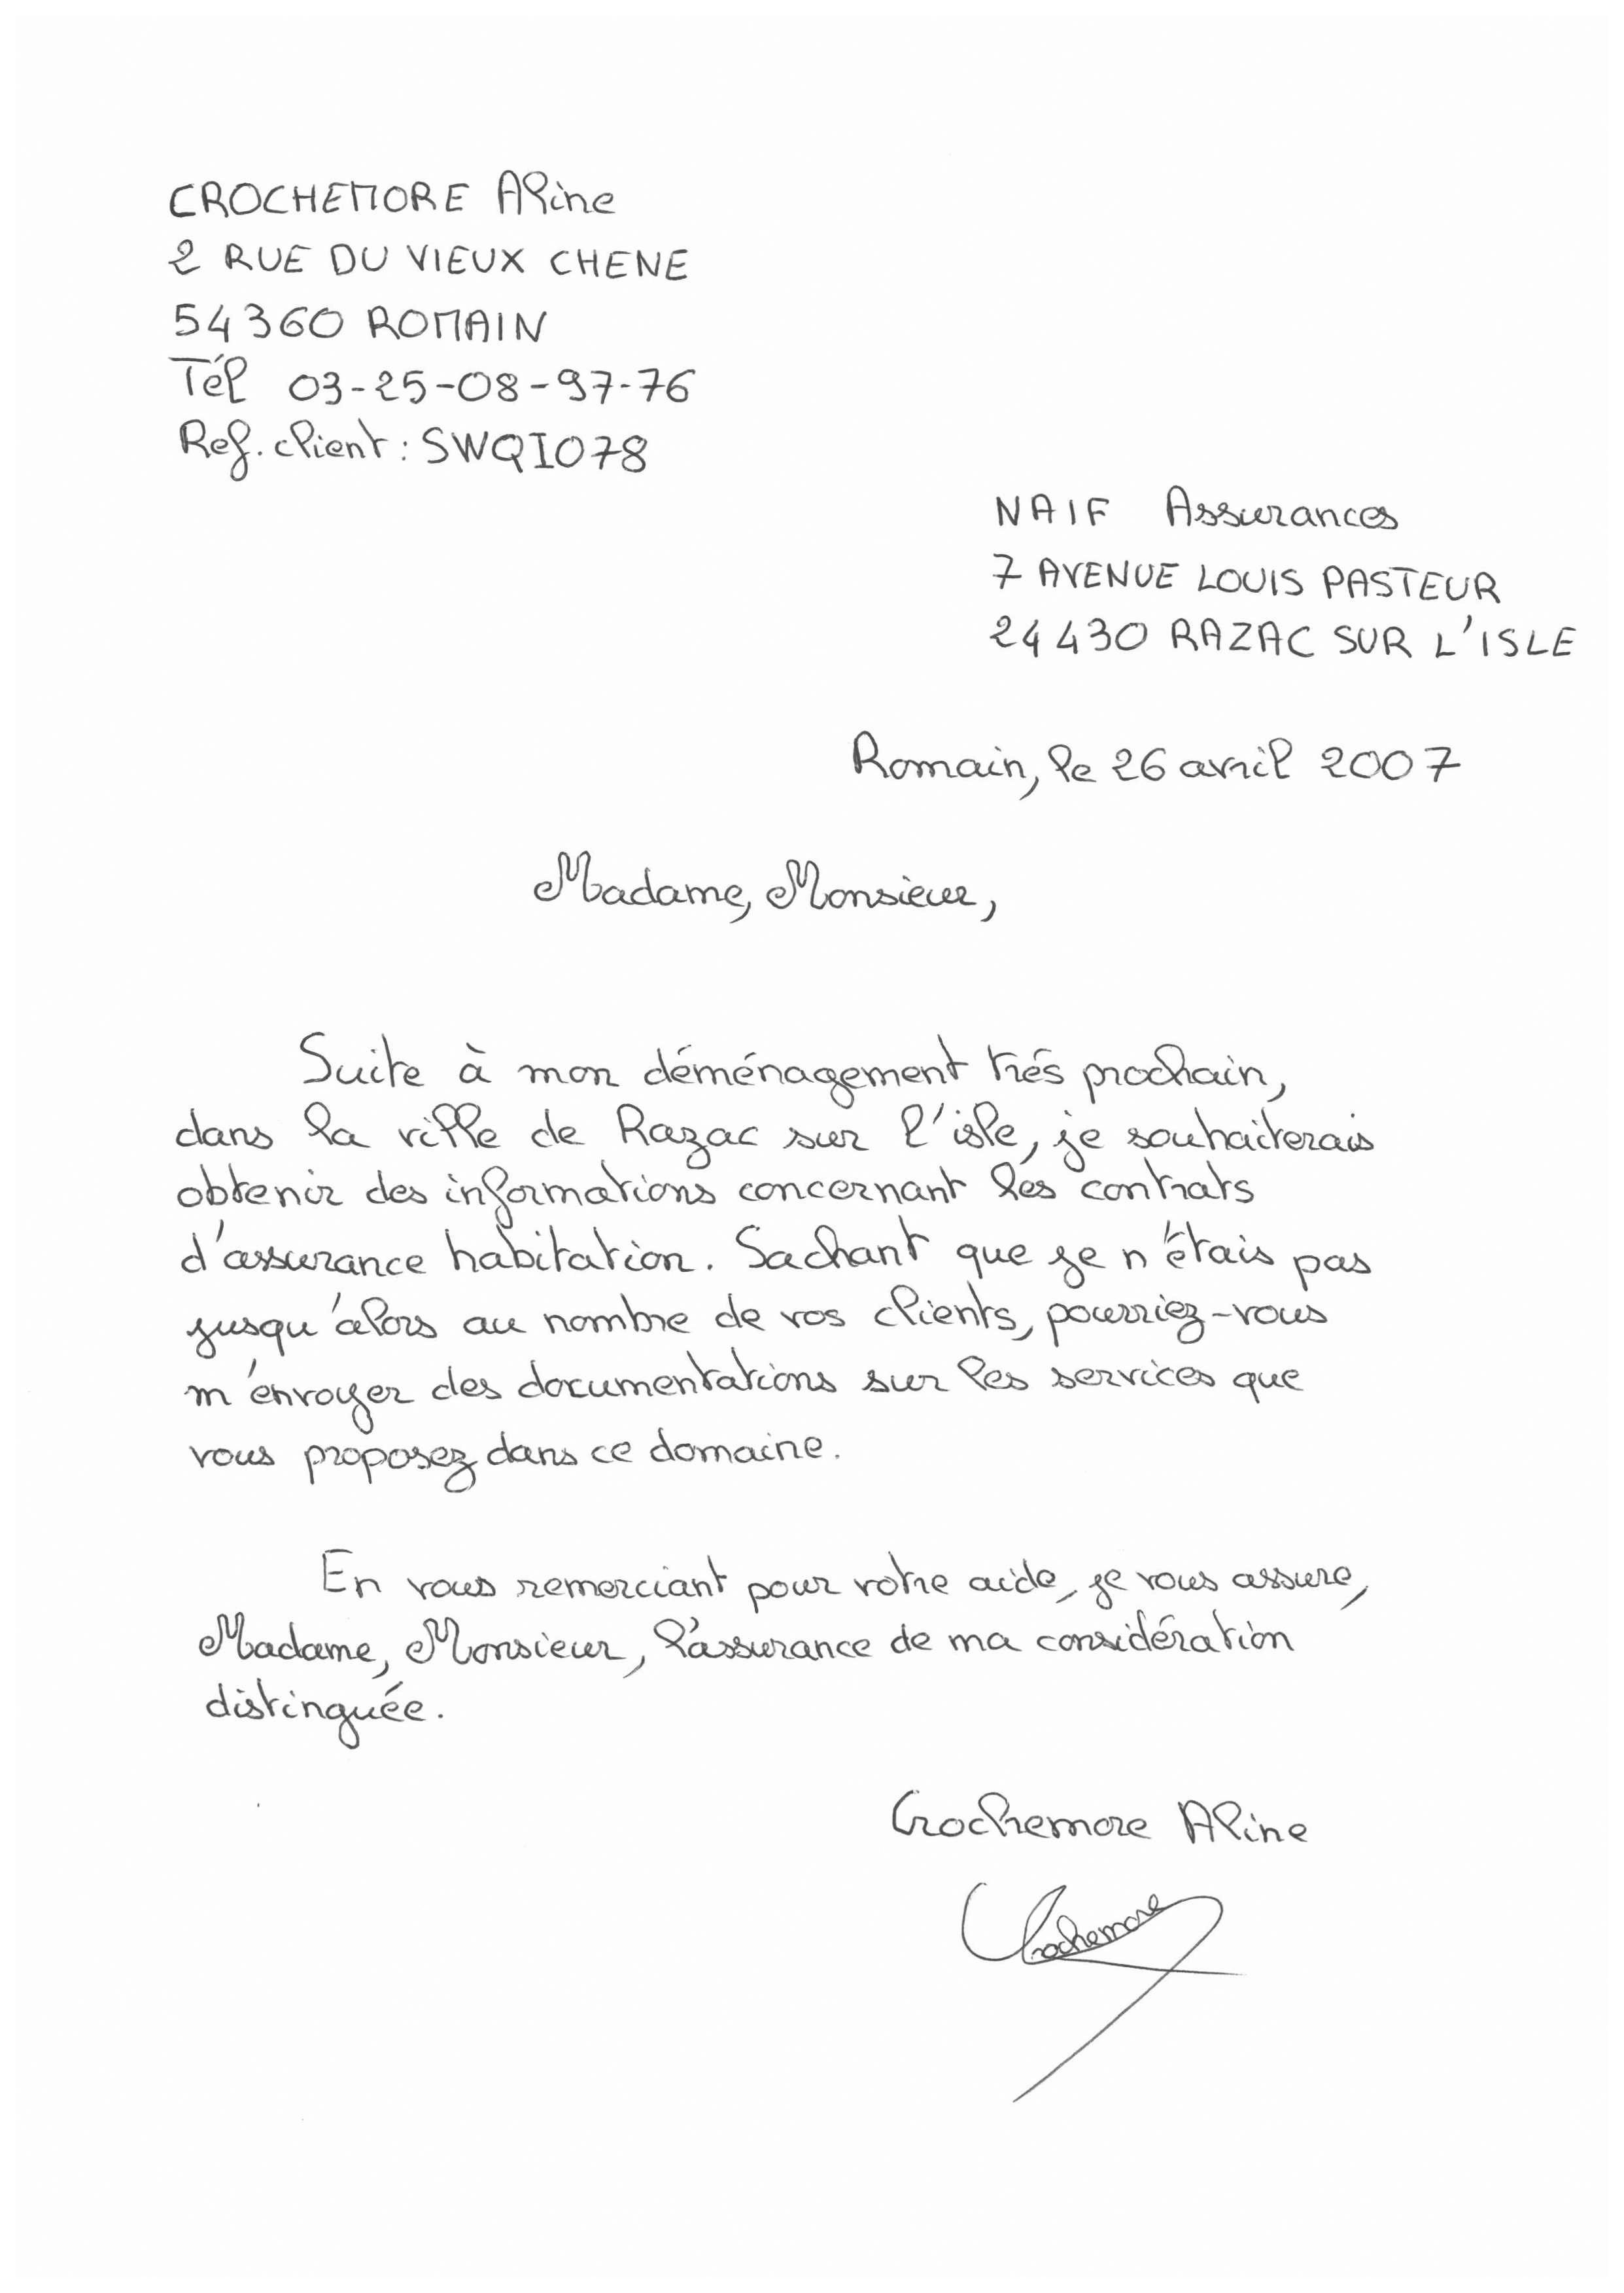 CROCHEMORE Aline
2 RUE DU VIEUX CHENE
54360 ROMAIN
Tél 03-25-08-97-76
Ref. client : SWQIO78
NAIF Assurances
7 AVENUE LOUIS PASTEUR
24430 RAZAC SUR L'ISLE
Romain, le 26 avril 2007
Madame, Monsieur,
Suite à mon déménagement trés prochain,
dans la ville de Razac sur l'isle, je souhaiterais
obtenir des informations concernant les contrats
d'assurance habitation. Sachant que je n'étais pas
jusqu'alors au nombre de vos clients, pourriez-vous
m'envoyer des documentations sur les services que
vous proposez dans ce domaine.
En vous remerciant pour votre aide, je vous assure,
Madame, Monsieur, l'assurance de ma considération
distinguée.
Crochemore Aline
Crochemore